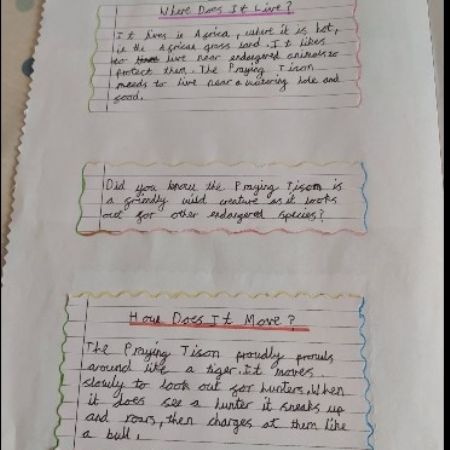 Where Does It Live?
It lives in Africa, where it is hot,
in the African grass land. It likes
to live near endangered animals to
protect them. The Praying Tison
needs to live near a watering hole and
food.
Did you know the Praying Tison is
a friendly wild creature as it looks
out for other endangered species?
How Does It Move?
The Praying Tison proudly prowls
around like a tiger. It moves
slowly to look out for hunters. When
it does see a hunter it sneaks up
and roars, then charges at them like
a bull.